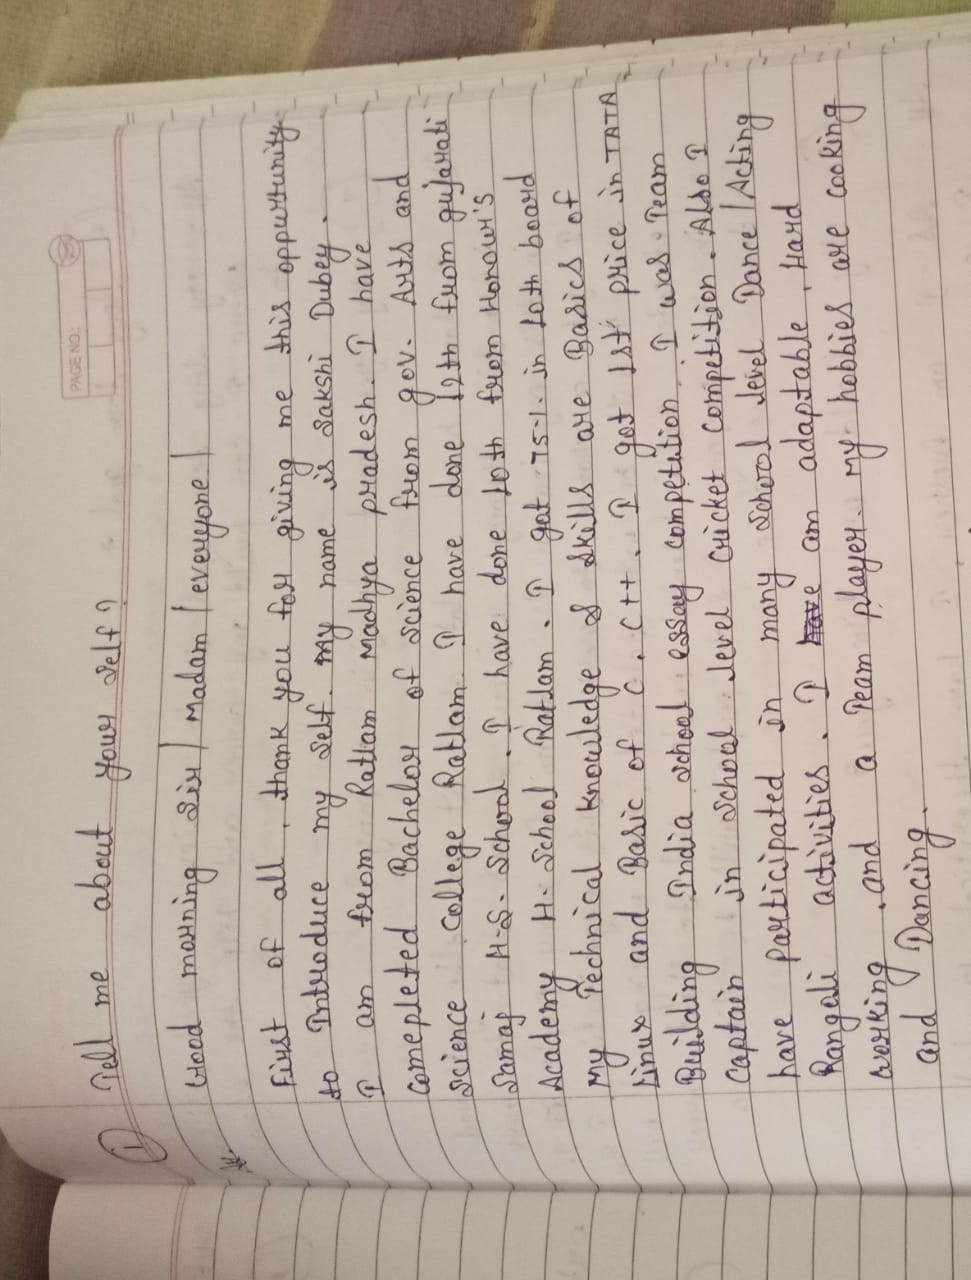 PAGE NO.:
① Tell me about your self?
Good morning Sir / Madam / everyone /
Ans.
First of all, thank you for giving me this oppurtunity
to Introduce my self. My name is Sakshi Dubey.
I am from Ratlam Madhya pradesh. I have
comepleted Bachelor of science from gov. Arts and
science College Ratlam. I have done 12th from gujarati
Samaj H.S. School. I have done 10th from Honowr's
Academy H. School Ratlam. I got 75%. in 10th board
My Technical knowledge & skills are Basics of
Linux and Basic of C, C++. I got 1st price in TATA
Building India school essay competition. I was Team
captain in school level cricket competition. Also I
have participated in many school level Dance / Acting
Rangoli activities. I have am adaptable, Hard
working, and a Team player. My hobbies are cooking
and Dancing.